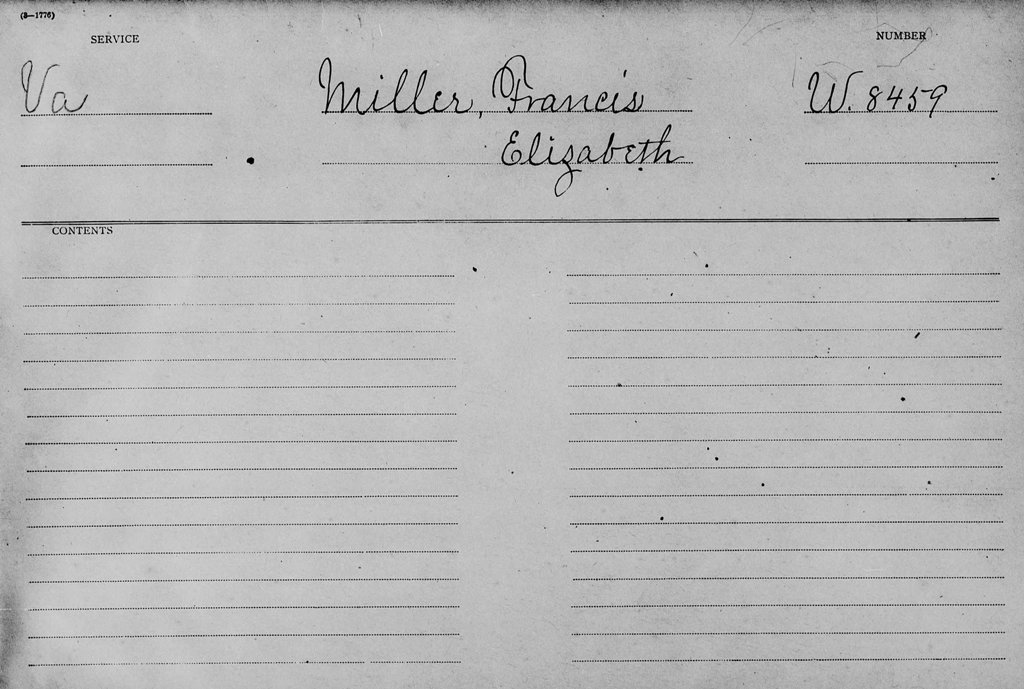 (3—1776)
SERVICE NUMBER
Va Miller, Francis W. 8459
Elizabeth
CONTENTS